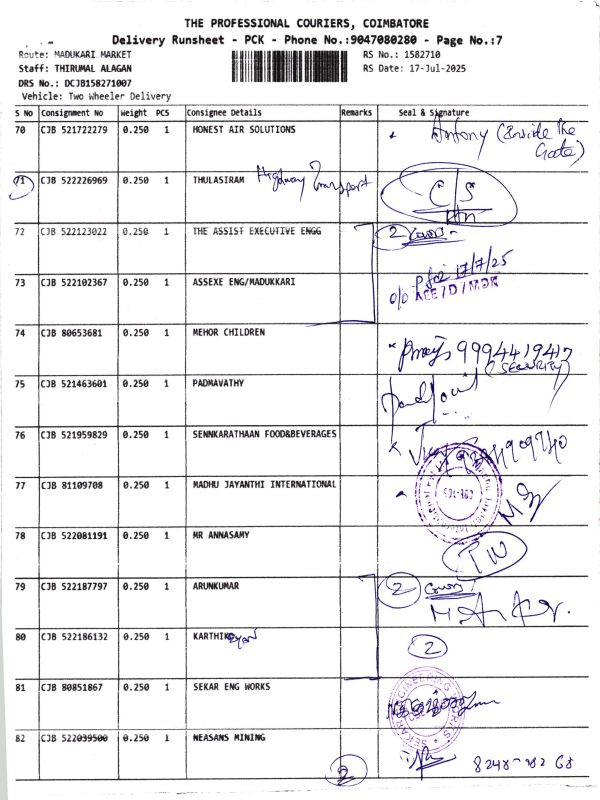 THE PROFESSIONAL COURIERS, COIMBATORE
Delivery Runsheet - PCK - Phone No.:9047080280 - Page No.:7
Route: MADUKARI MARKET RS No.: 1582710
Staff: THIRUMAL ALAGAN RS Date: 17-Jul-2025
DRS No.: DCJB158271007
Vehicle: Two Wheeler Delivery
S No Consignment No Weight PCS Consignee Details Remarks Seal & Signature
70 CJB 521722279 0.250 1 HONEST AIR SOLUTIONS Antony (Inside The
Gate)
71 CJB 522226969 0.250 1 THULASIRAM Highway Transport C/S
72 CJB 522123022 0.250 1 THE ASSIST EXECUTIVE ENGG 2 Covers
73 CJB 522102367 0.250 1 ASSEXE ENG/MADUKKARI 17/7/25
O/O AEE/D/MDK
74 CJB 80653681 1 MEHOR CHILDREN 9994419417
(SECURITY)
75 CJB 521463601 0.250 1 PADMAVATHY
76 CJB 521959829 0.250 1 SENNKARATHAAN FOOD&BEVERAGES
77 CJB 81109708 0.250 1 MADHU JAYANTHI INTERNATIONAL
78 CJB 522081191 0.250 1 MR ANNASAMY
79 CJB 522187797 0.250 1 ARUNKUMAR 2 Covers
80 CJB 522186132 0.250 1 KARTHIKeyan 2
81 CJB 80851867 0.250 1 SEKAR ENG WORKS
82 CJB 522039500 0.250 1 NEASANS MINING
2